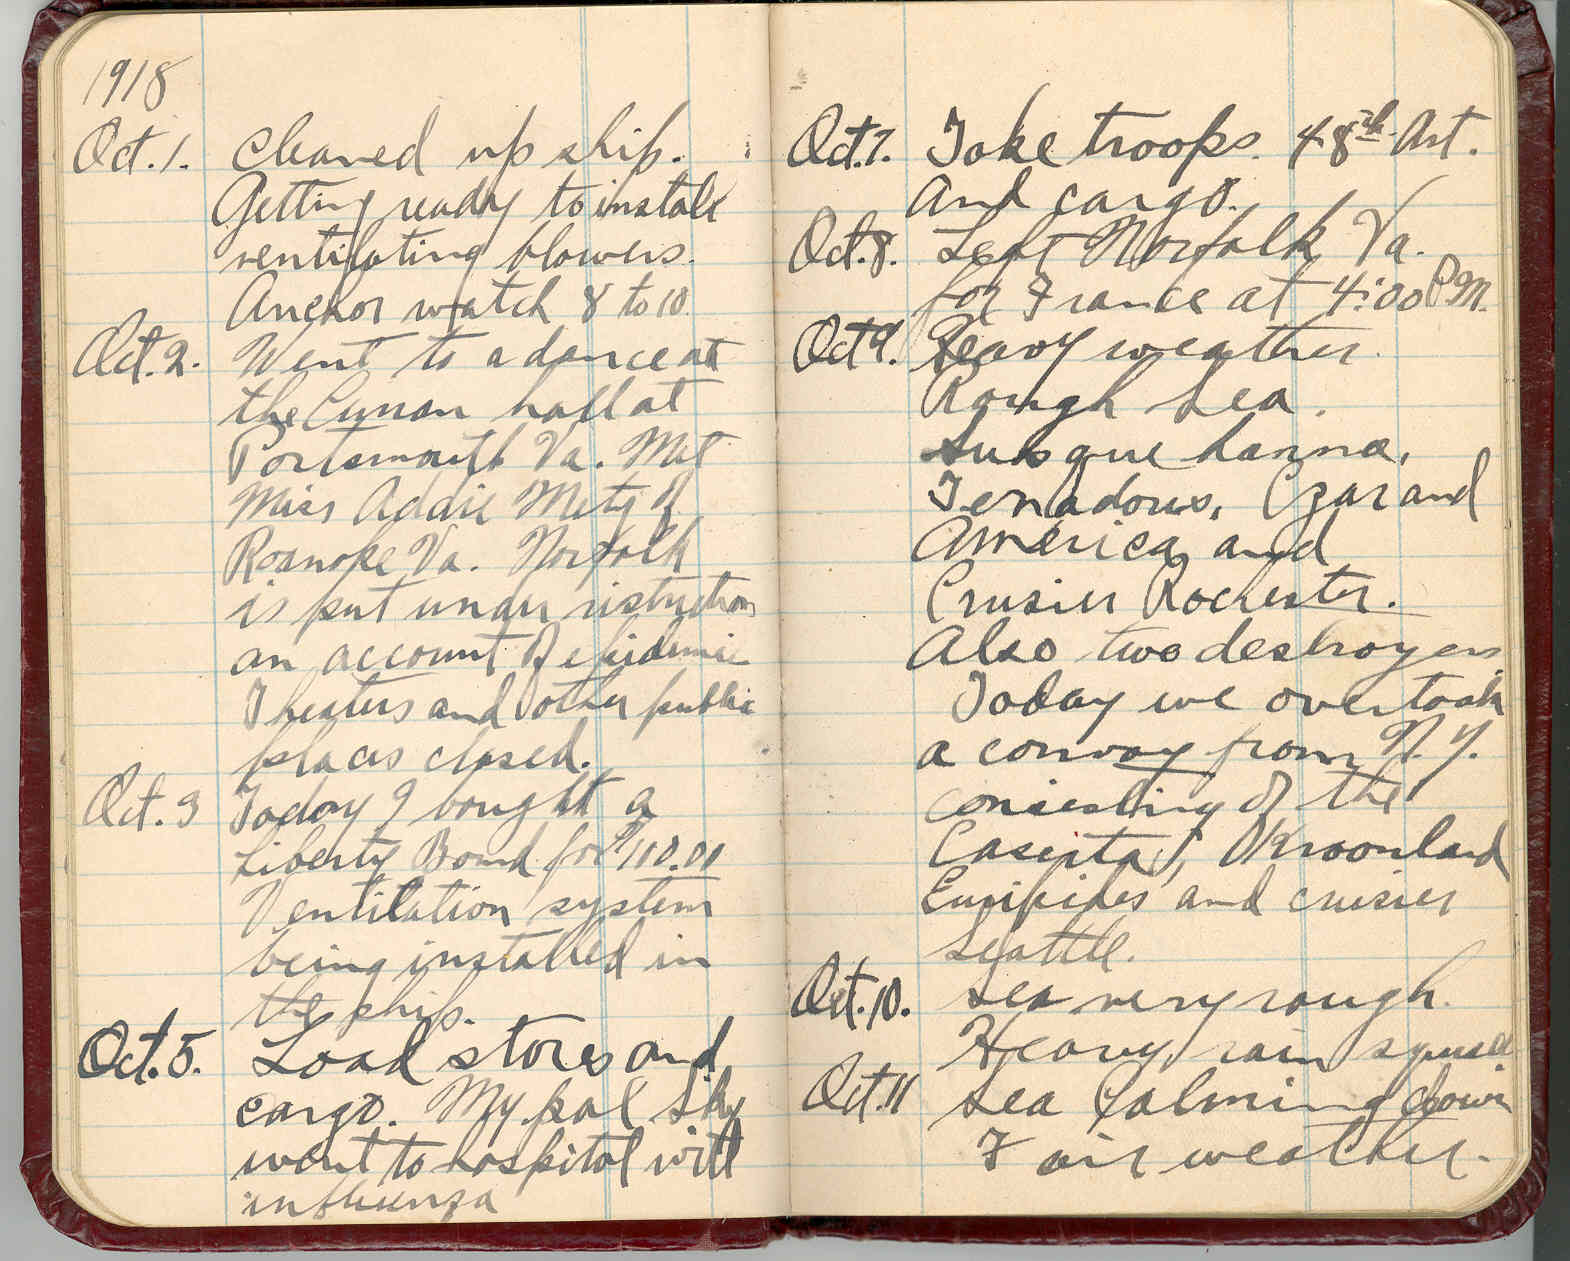 1918
Oct. 1. Cleaned up ship.
Getting ready to install
ventilating blowers.
Anchor watch 8 to 10.
Oct. 2. Went to a dance at
the hall at
Portsmouth Va. Met
Miss Addie Metz of
Roanoke Va. Norfolk
is put under ristriction
an account of epidemic
Theaters and other public
places closed.
Oct. 3 Today I bought a
Liberty Bond for $100.00
Ventilation system
being installed in
the ship.
Oct. 5. Load stores and
cargo. My pal Sky
went to hospital with
influenza
Oct. 7. Take troops. 48th Art.
and cargo.
Oct. 8. Left Norfolk Va.
for France at 4:00 P.M.
Oct 9. Heavy weather.
Rough sea.
Susquehanna,
Tenadores, Czar and
America and
Crusier Rochester.
Also two destroyers.
Today we overtook
a convoy from N.Y.
consisting of the
Caserta, Kroonland
Euripides and crusier
Seattle.
Oct. 10. Sea very rough.
Heavy rain squall
Oct. 11 Sea calming down
Fair weather.